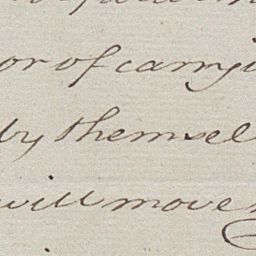 or of carryi
by themsel
will move